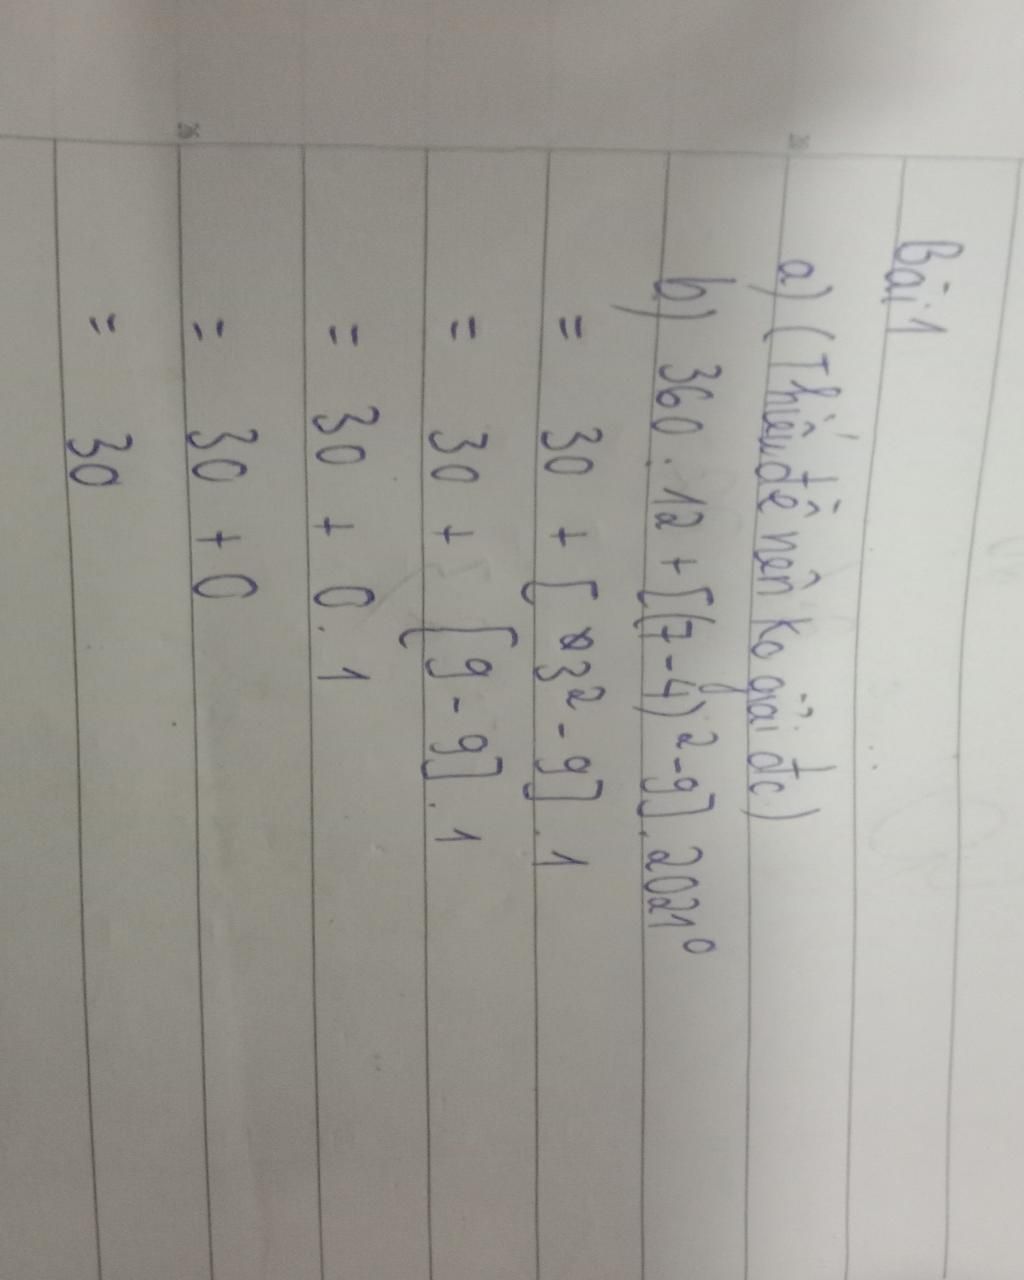 Bài 1
a) (Thiếu đề nên ko giải đc)
b) 360 : 12 + [(7-4)² - 9] . 2021⁰
= 30 + [3² - 9] . 1
= 30 + [9 - 9] . 1
= 30 + 0 . 1
= 30 + 0
= 30